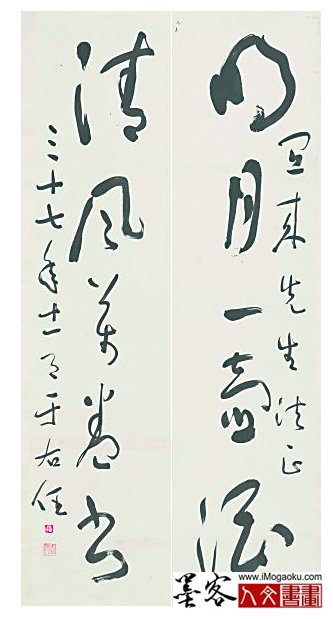 來先生法正
明月一壺酒
清風萬卷書
三十七年十一月于右任
墨客
www.iMogaoku.com
人文書畫